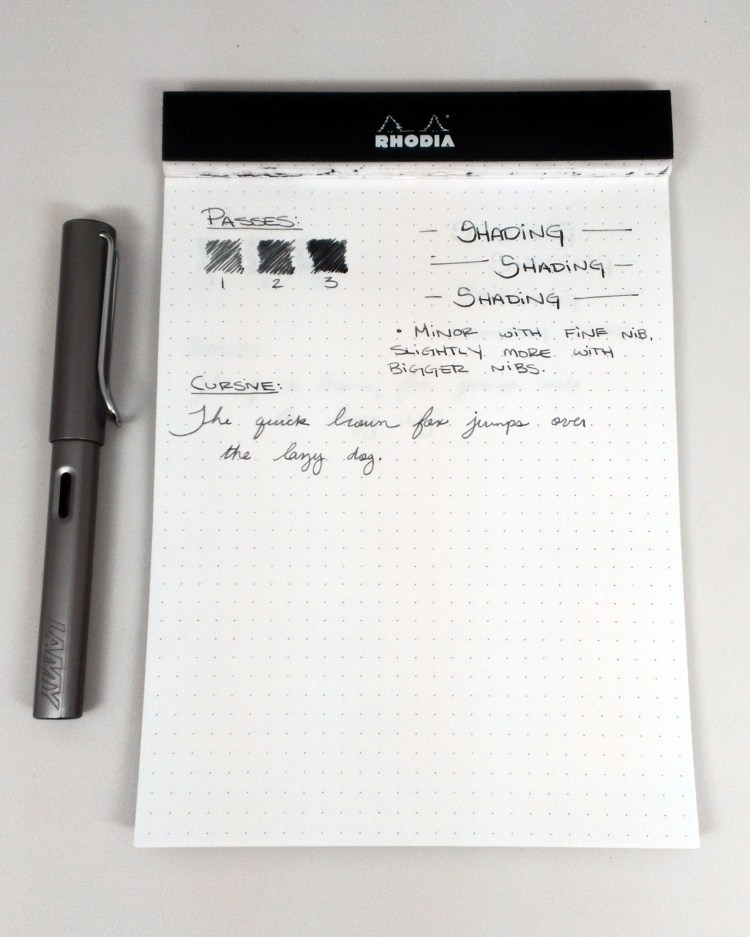 RHODIA
PASSES:
1 2 3
— SHADING —
— SHADING —
— SHADING —
• MINOR WITH FINE NIB,
SLIGHTLY MORE WITH
BIGGER NIBS.
CURSIVE:
The quick brown fox jumps over
the lazy dog.
LAMY